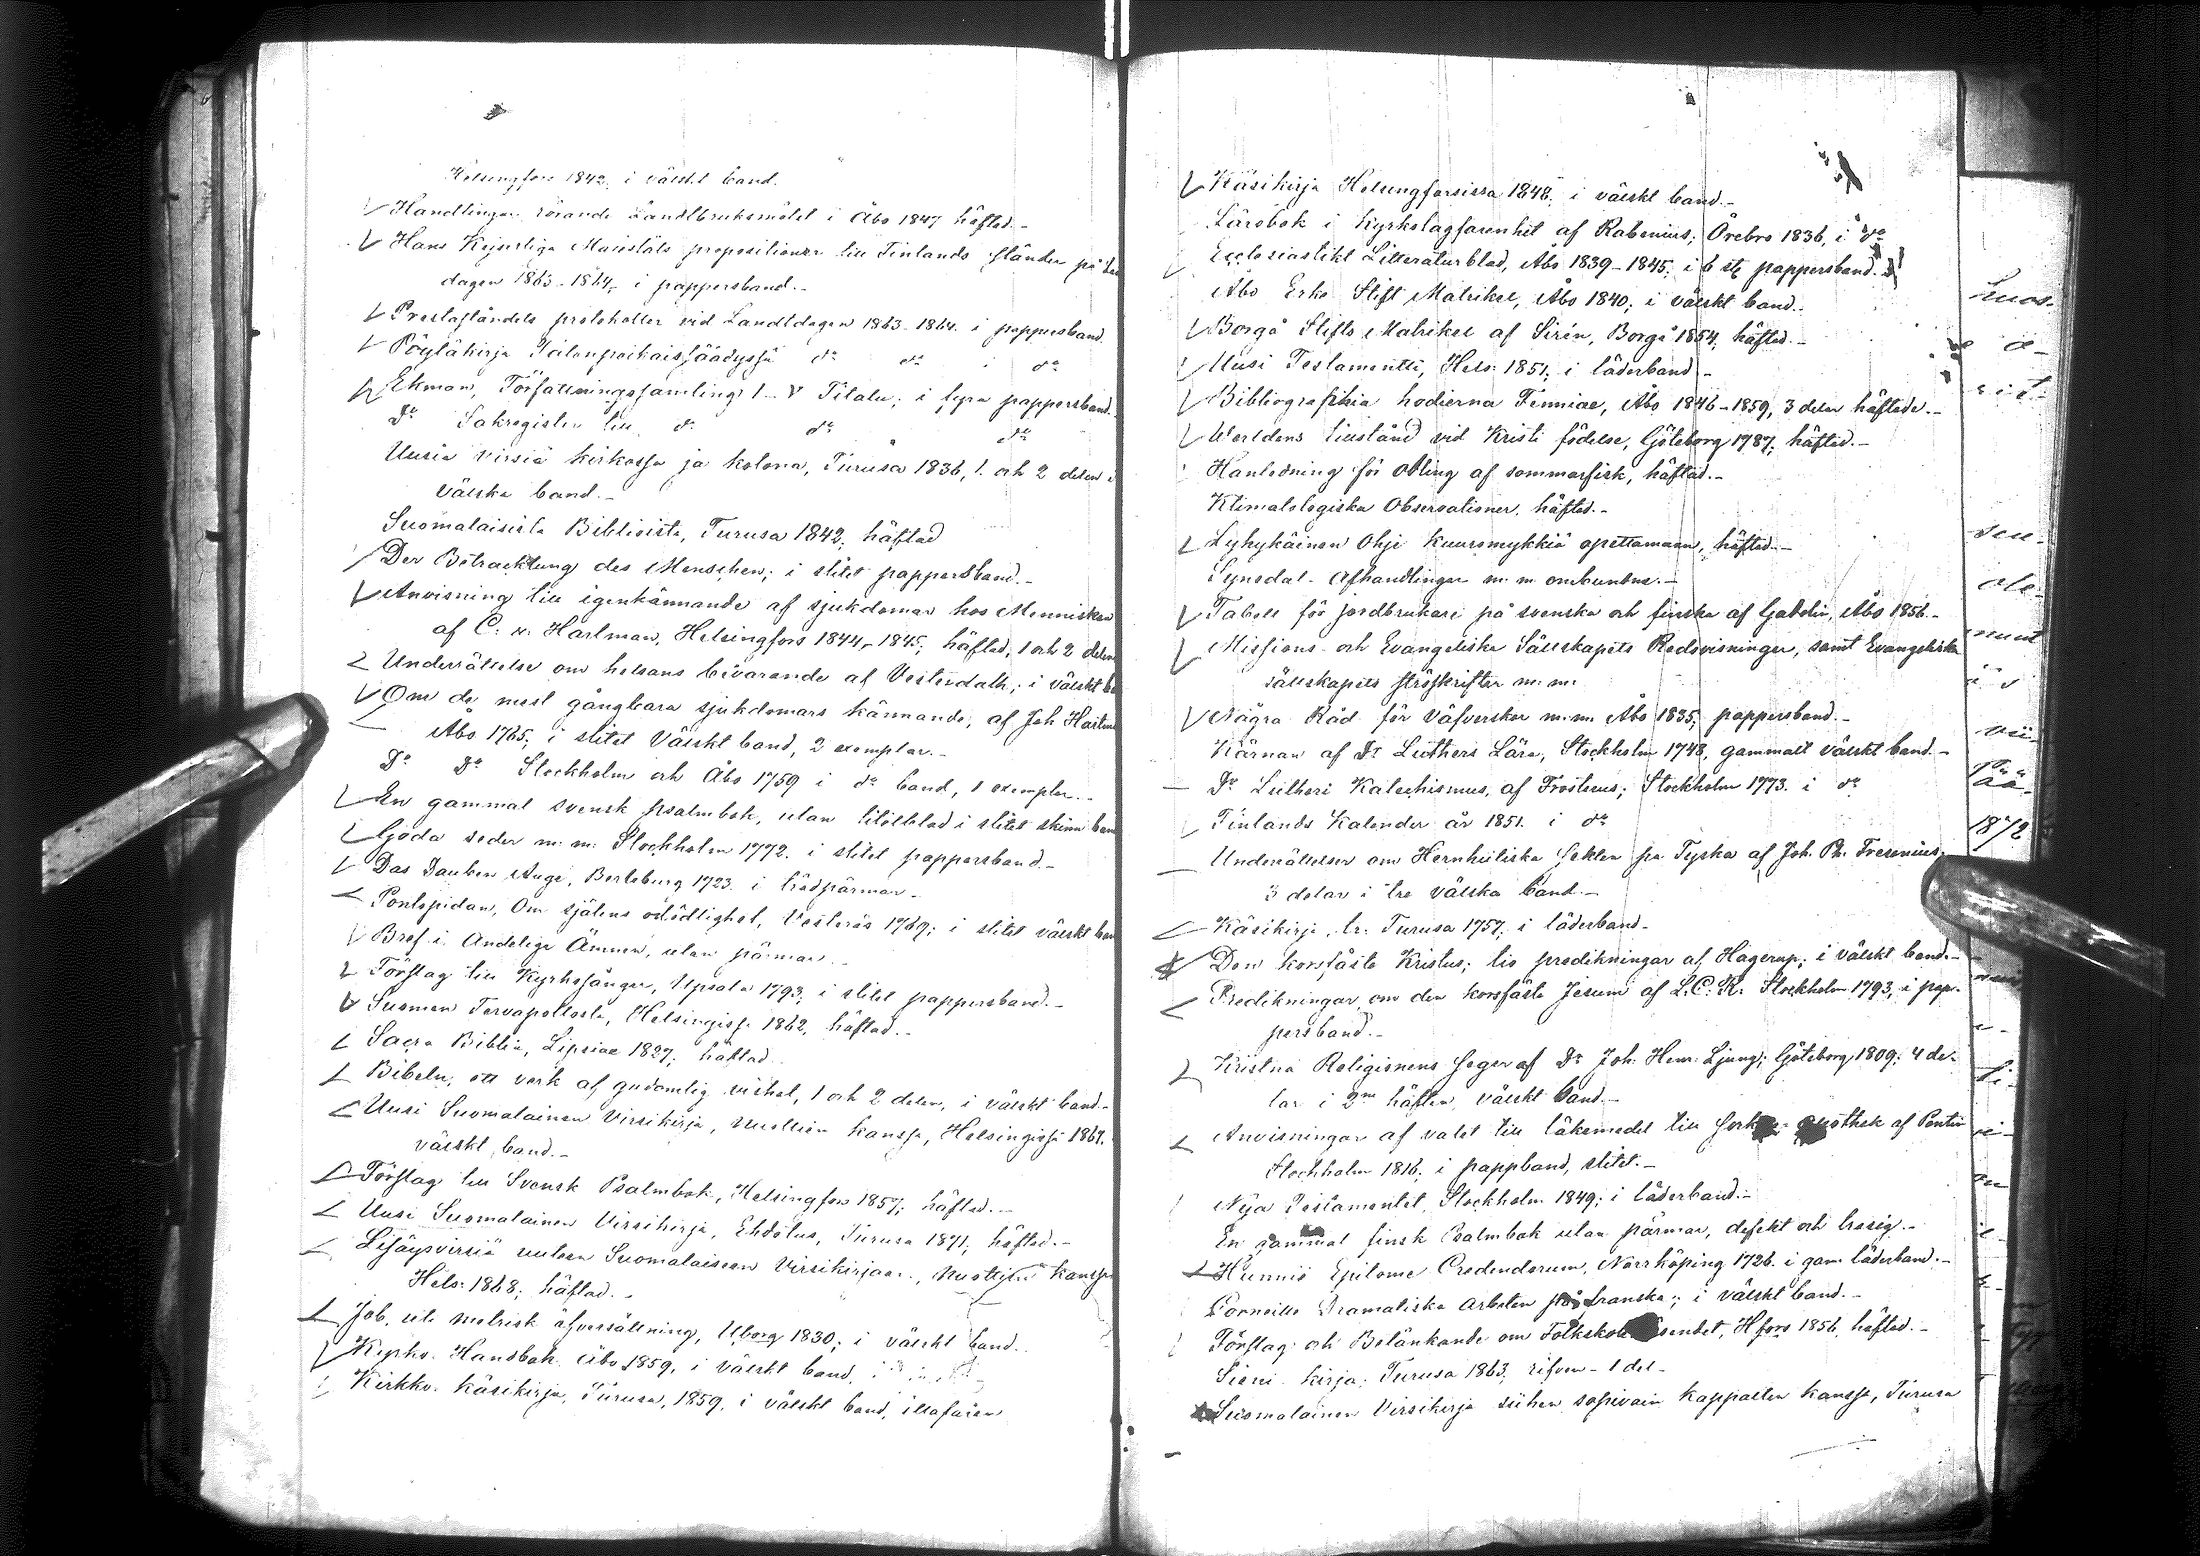 Helsingfors 1842, i välskt band.
Handlingar rörande Landtbruksmötet i Åbo 1847 häftad.-
Hans Kejserliga Majestäts propositioner till Finlands ständer på
dagen 1863-1864, i pappersband.-
Presteståndets protokoller vid Landtdagen 1863-1864. i pappersband.
Pöytäkirja Talonpoikaissäädyssä do do i do
Ekman, Författningssamling 1-V Titeln; i fyra pappersband.
Do Sakregister till do do do
Uusia virsiä kirkossa ja kotona, Turusa 1836, 1. och 2 delen i
välska band.-
Suomalaisista Biblioista, Turusa 1842; häftad
Der Betracktung des Menschen; i slitet pappersband.-
Anvisning till igenkännande af sjukdomar hos Menniskan
af C. v. Hartman, Helsingfors 1844-1845; häftad, 1 och 2 delen
Underrättelse om helsans bevarande af Vesterdalh; i välskt
Om de mest gångbara sjukdomars kännande, af Joh Hartm
Åbo 1765; i slitet Välskt band, 2 exemplar.-
Do Do Stockholm och Åbo 1759 i do band, 1 exemplar.-
En gammal svensk psalmbok, utan titelblad i slitet skinn
Goda seder m: m: Stockholm 1772. i slitet pappersband.-
Das Tauben Auge, Berleburg 1723. i trädpärmar.-
Pontopidan, Om själens odödlighet, Vesterås 1769; i slitet välskt
Bref i Andeliga Ämnen, utan pärmar.-
Förslag till Kyrkosånger, Upsala 1793, i slitet pappersband.-
Suomen Tervapolttosta, Helsingissä 1862, häftad.-
Sacra Biblia, Lipsiae 1827; häftad
Bibeln, ett verk af gudomlig vishet, 1 och 2 delen, i välskt band.-
Uusi Suomalainen Virsikirja, nuottien kanssa, Helsingissä 1867.
välskt band.-
Förslag till Svensk Psalmbok, Helsingfors 1857; häftad.-
Uusi Suomalainen Virsikirja, Ehdotus, Turusa 1871; häftad.-
Lisäysvirsiä uuteen Suomalaiseen Virsikirjaan, nuottien kanssa
Hels: 1868; häftad.
Job, uti metrisk öfversättning, Uborg 1830; i välskt band.
Kyrko-Handbok Åbo 1859, i välskt band,
Kirkko-käsikirja, Turusa, 1859. i välskt band, illafaren
Käsikirja Helsingforsissa 1848; i välskt band.-
Lärobok i Kyrkolagfarenhet af Rabenius; Örebro 1836, i do
Ecclesiastikt Litteraturblad, Åbo 1839-1845; i 6 st pappersband.
Åbo Erke Stift Matrikel, Åbo 1840; i välskt band.
Borgå Stifts Matrikel af Sirén, Borgå 1854; häftad.-
Uusi Testamentti, Hels: 1851; i läderband.-
Bibliografhia hodierna Fenniae, Åbo 1846-1859, 3 delar häftade.-
Werldens tillstånd vid Kristi födelse, Göteborg 1787; häftad.-
Hanledning för Odling af sommarfisk, häftad.-
Klimatologiska Observationer, häftad.-
Lyhykäinen Ohje kuuromykkiä opettamaan, häftad.-
Synodal-Afhandlingar m: m: ombundna.-
Tabell för jordbrukare på svenska och finska af Gadolin, Åbo 1856.-
Missions- och Evangeliska Sällskapets Redovisningar, samt Evangeliska
sällskapets ströskrifter m: m:
Några Råd för Väfverskor m: m: Åbo 1835; pappersband.-
Kärnan af Dr Luthers Lära, Stockholm 1748, gammalt välskt band.-
Dr Lutheri Katechismus, af Frosterus; Stockholm 1773. i do
Finlands Kalender år 1851. i do
Underrättelser om Hernhutiska Sekten fr. Tyska af Joh. Ph. Fresenius,
3 delar i tre välska band.-
Käsikirja, tr: Turusa 1757; i läderband.-
Den korsfäste Kristus; tio predikningar af Hagerup; i välskt band.-
Predikningar om den korsfäste Jesum af L: C: R: Stockholm 1793, i pap-
persband.-
Kristna Religionens Seger af Dr Joh: Henr: Ljung; Göteborg 1809; 4 de-
lar i 2ne häften, välskt band.-
Anvisningar af valet till läkemedel till af Pontin
Stockholm 1816; i pappband, slitet.-
Nya Testamentet, Stockholm 1849; i läderband.-
En gammal finsk Psalmbok utan pärmar, defekt och trasig.-
Hunnii Epitome Credendorum, Norrköping 1726. i gam: läderband.-
Corneille Dramatiska arbeten på franska; i välskt band.-
Förslag och Betänkande om Folkskole , Hfors 1856, häftad.-
Sieni-kirja, Turusa 1863, rifven-1 del-
Suomalainen Virsikirja siihen sopivain kappalten kanssa, Turusa
1872